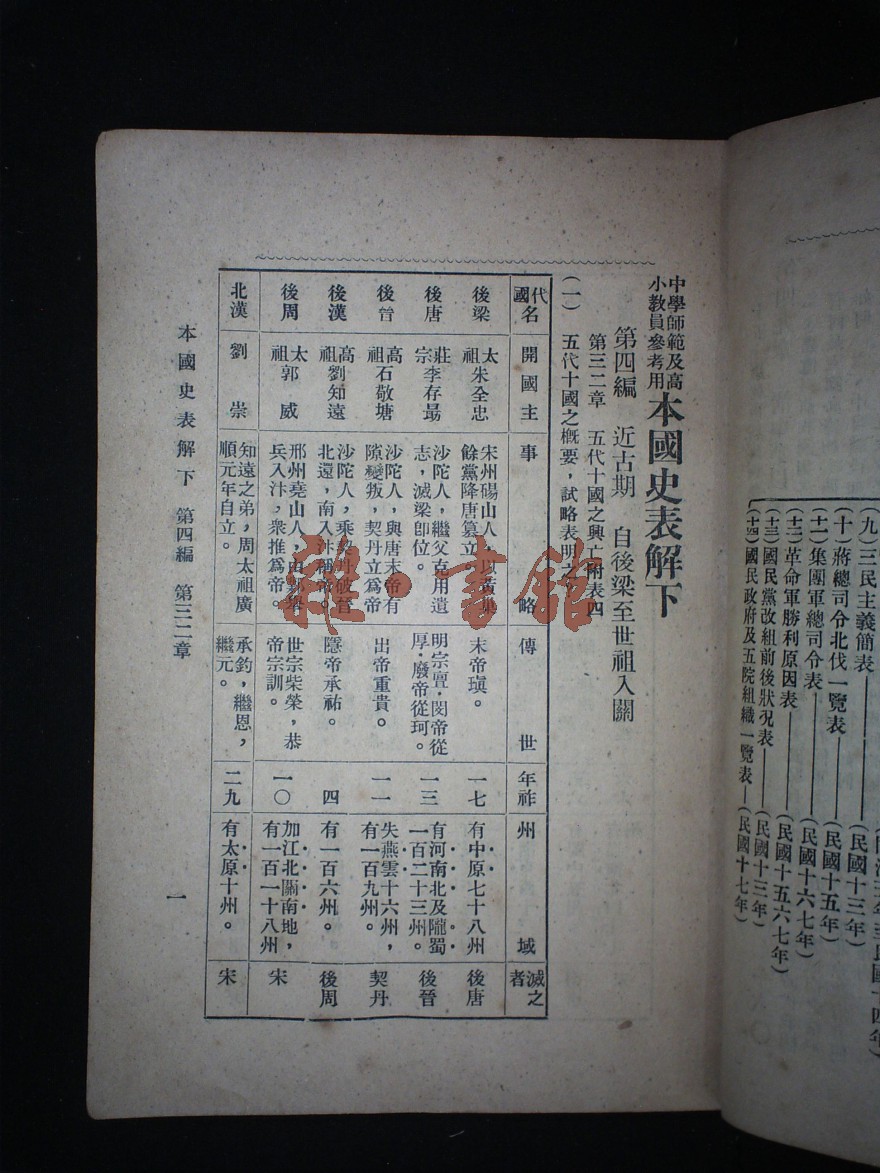 中學師範及高
小教員參考用
本國史表解下
第四編　近古期　自後梁至世祖入關
第三二章　五代十國之興亡附表四
（一）　五代十國之概要，試略表明之
代名
國
開國主
事略
傳世
年祚
州域
滅之者
後梁
太祖朱全忠
宋州碭山人，以黃巢餘黨降唐篡立。
末帝瑱。
一七
有中原七十八州
後唐
後唐
莊宗李存勗
沙陀人，繼父克用遺志，滅梁卽位。
明宗亶·閔帝從厚·廢帝從珂。
一三
有河南北及隴蜀一百二十三州。
後晉
後晉
高祖石敬塘
沙陀人，與唐末帝有隙變叛，契丹立爲帝
出帝重貴。
一一
失燕雲十六州，有一百九州。
契丹
後漢
高祖劉知遠
沙陀人，乘契丹破晉北還，南入汴稱帝。
隱帝承祐。
四
有一百六州。
後周
後周
太祖郭威
邢州堯山人，由鄴舉兵入汴，衆推爲帝。
世宗柴榮，恭帝宗訓。
一〇
加江北關南地，有一百一十八州
宋
北漢
劉崇
知遠之弟，周太祖廣順元年自立。
承鈞，繼恩，繼元。
二九
有太原十州。
宋
本國史表解下　第四編　第三二章
一
雜·書館
（九）三民主義簡表——（民國十三年）
（十）蔣總司令北伐一覽表——（民國十五年）
（十一）集團軍總司令表——（民國十六七年）
（十二）革命軍勝利原因表——（民國十五六七年）
（十三）國民黨改組前後狀況表——（民國十三年）
（十四）國民政府及五院組織一覽表——（民國十七年）